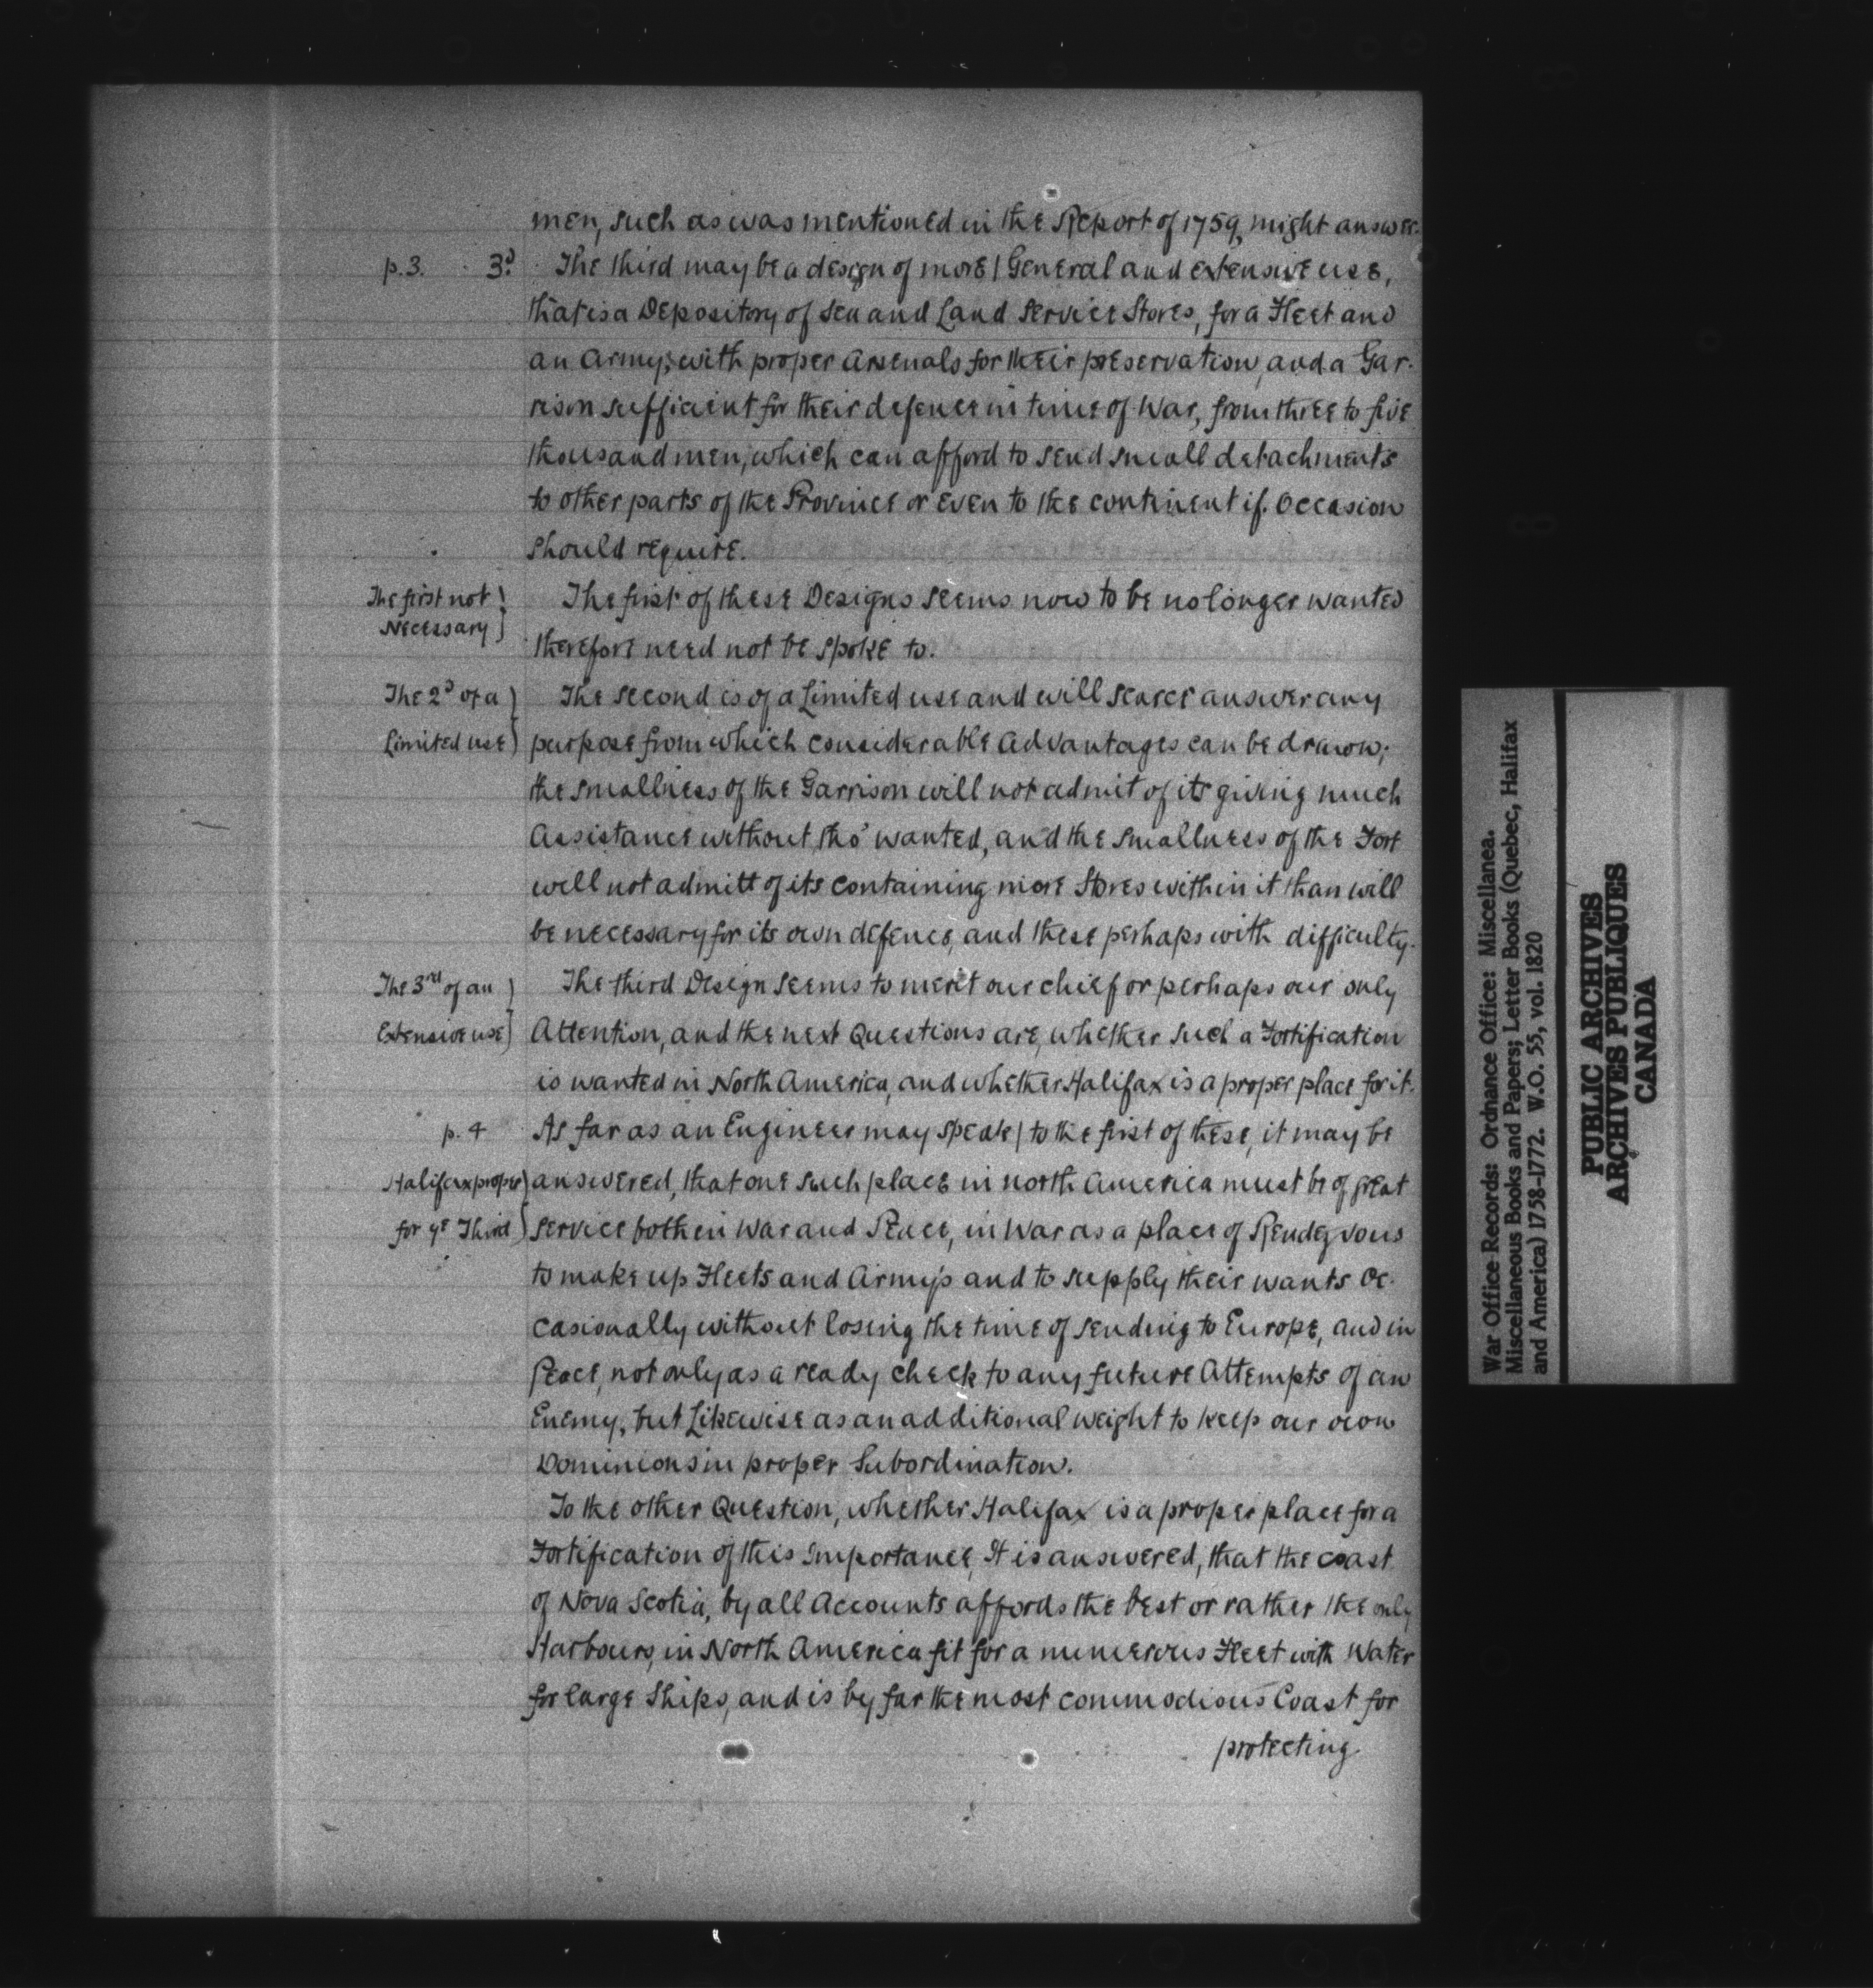 men, such as was mentioned in the Report of 1759, might answer.
p. 3. 3d. The third may be a design of more / General and extensive use,
that is a Depository of Sea and Land Service Stores, for a Fleet and
an Army; with proper Arsenals for their preservation, and a Gar-
rison sufficient for their defence in time of War, from three to five
thousand men, which can afford to send small detachments
to other parts of the Province or even to the continent if Occasion
should require.
The first not
Necessary
The first of these Designs seems now to be no longer wanted
therefore need not be spoke to.
The 2d of a
Limited use
The second is of a Limited use and will scarce answer any
purpose from which considerable Advantages can be drawn;
the smallness of the Garrison will not admit of its giving much
Assistance without, tho' wanted, and the smallness of the Fort
will not admitt of its containing more Stores within it than will
be necessary for its own defence, and these perhaps with difficulty.
The 3rd of an
Extensive use
The third Design seems to merit our chief or perhaps our only
Attention, and the next Questions are, whether such a Fortification
is wanted in North America, and whether Halifax is a proper place for it.
p. 4 As far as an Engineer may speak / to the first of these, it may be
Halifax proper
for ye Third
answered, that one such place in north America must be of great
service both in War and Peace, in War as a place of Rendezvous
to make up Fleets and Armys and to supply their wants Oc-
casionally without losing the time of sending to Europe, and in
Peace, not only as a ready check to any future Attempts of an
Enemy, but Likewise as an additional weight to keep our own
Dominions in proper Subordination.
To the other Question, whether Halifax is a proper place for a
Fortification of this Importance, It is answered, that the coast
of Nova Scotia, by all Accounts affords the best or rather the only
Harbours, in North America fit for a numerous Fleet with Water
for large Ships, and is by far the most commodious Coast for
protecting
War Office Records: Ordnance Office: Miscellanea.
Miscellaneous Books and Papers; Letter Books (Quebec, Halifax
and America) 1758-1772. W.O. 55, vol. 1820
PUBLIC ARCHIVES
ARCHIVES PUBLIQUES
CANADA